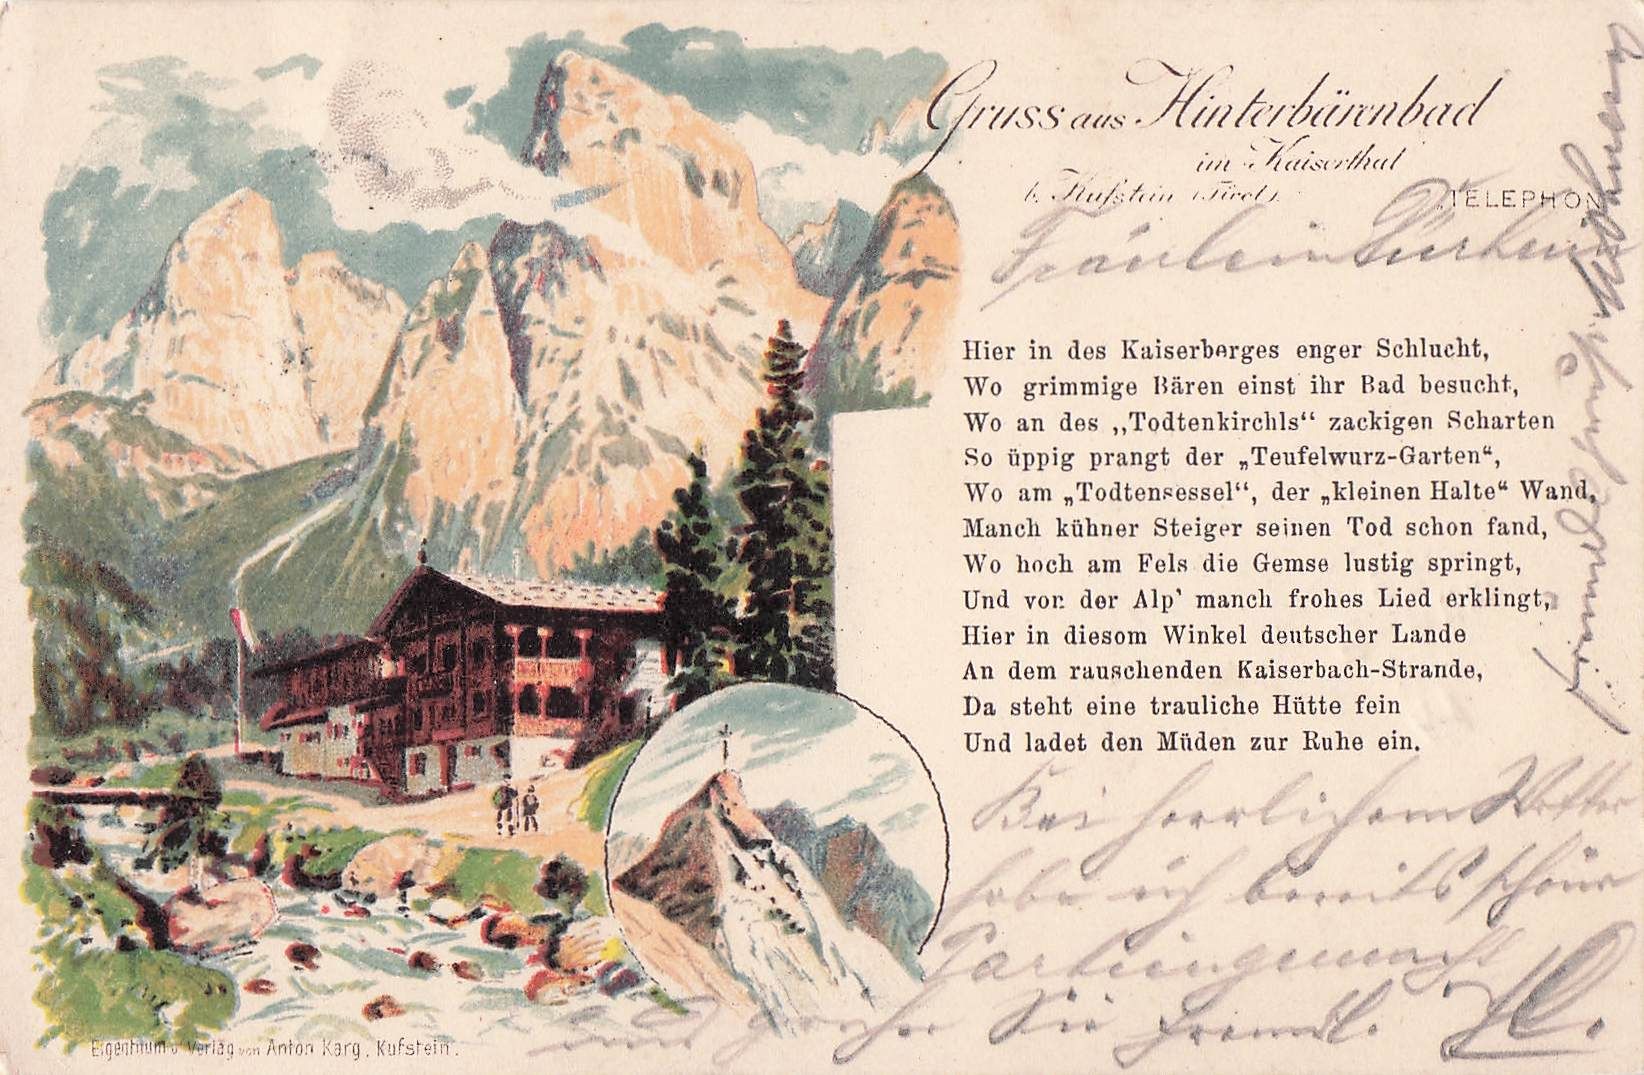 Gruss aus Hinterbärenbad
im Kaiserthal
b. Kufstein (Tirol).
TELEPHON.
Fräulein
Hier in des Kaiserberges enger Schlucht,
Wo grimmige Bären einst ihr Bad besucht,
Wo an des „Todtenkirchls“ zackigen Scharten
So üppig prangt der „Teufelwurz-Garten“,
Wo am „Todtensessel“, der „kleinen Halte“ Wand,
Manch kühner Steiger seinen Tod schon fand,
Wo hoch am Fels die Gemse lustig springt,
Und von der Alp' manch frohes Lied erklingt,
Hier in diesem Winkel deutscher Lande
An dem rauschenden Kaiserbach-Strande,
Da steht eine trauliche Hütte fein
Und ladet den Müden zur Ruhe ein.
Bei herrlichem Wetter
habe ich bereits schöne
Partien gemacht
und grüße Sie freundl.
Eigenthum u. Verlag von Anton Karg, Kufstein.